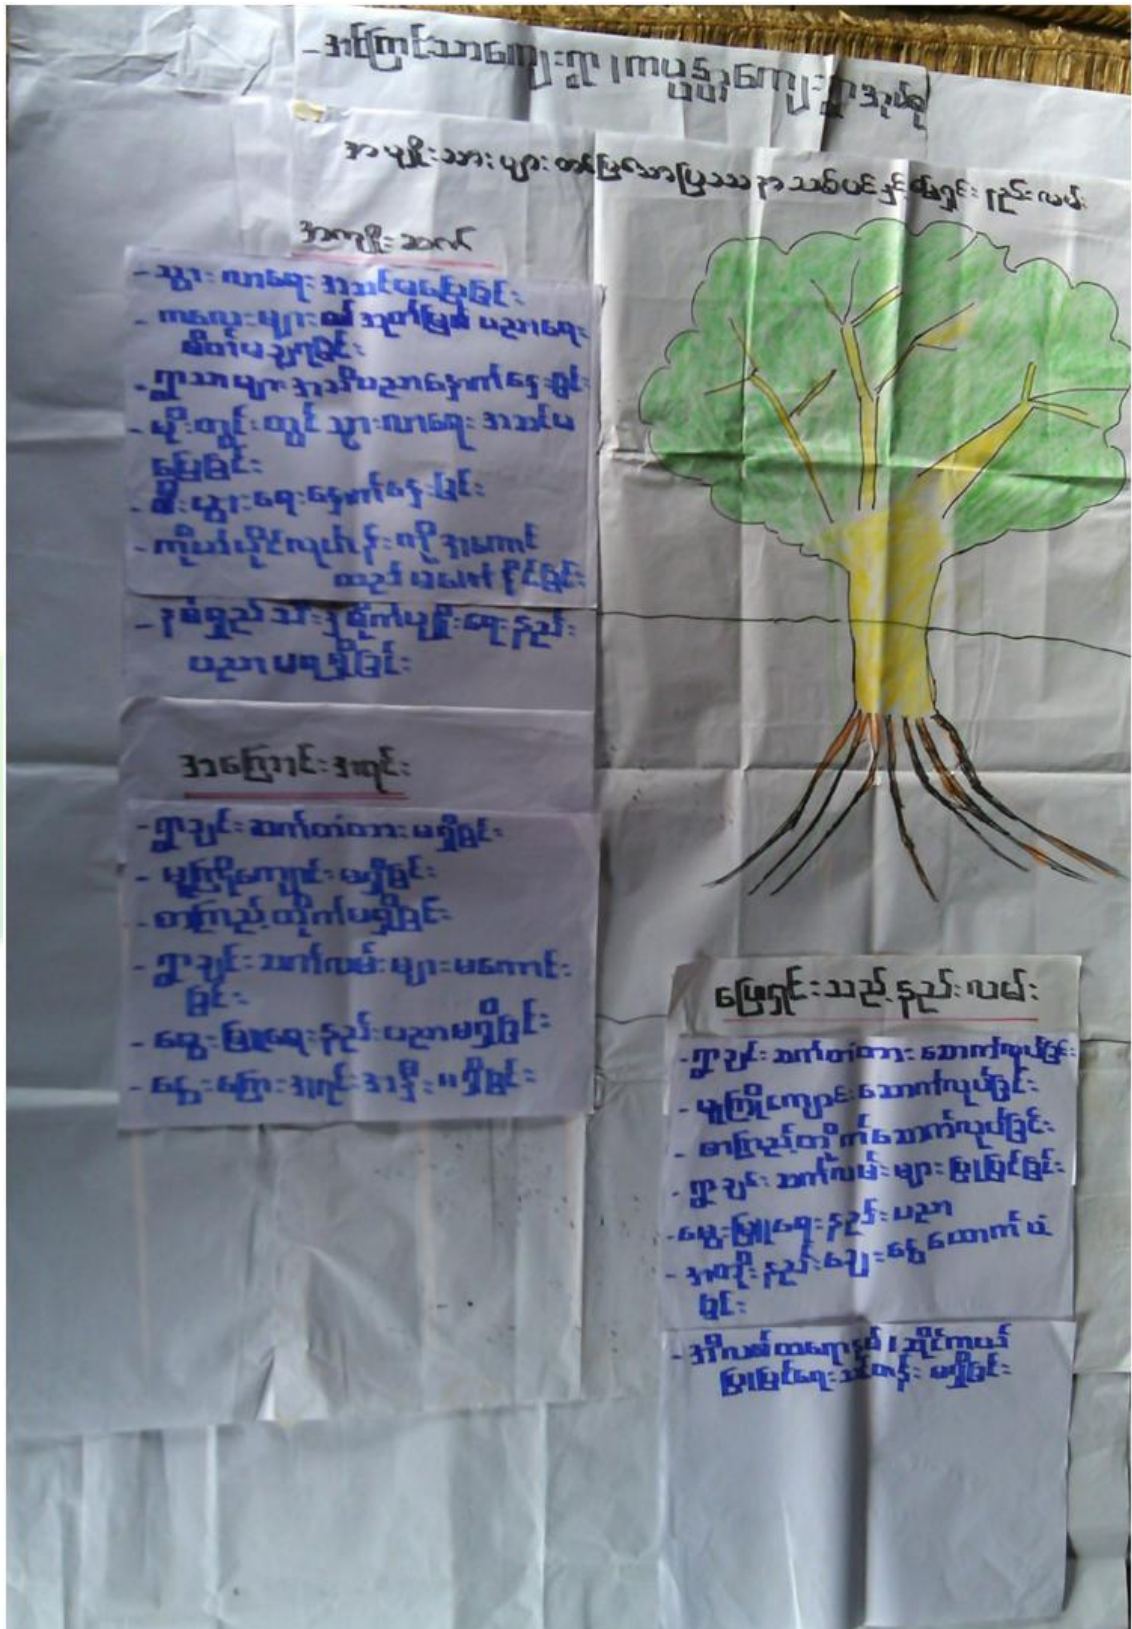 - အင်ကြင်းသာကျေးရွာ၊ ကျေးရွာအုပ်စု
အမျိုးသားများ တင်ပြသောပြဿနာသစ်ပင်နှင့် ဖြေရှင်းနည်းလမ်း
အကျိုးဆက်
- သွားလာရေး အဆင်မပြေခြင်း
- ကလေးများ ပညာရေး
စိတ်မချရခြင်း
- ရွာသားများ အသိပညာနောက်နှေးခြင်း
- မိုးတွင်းတွင် သွားလာရေး အဆင်မ
ပြေခြင်း
- စီးပွားရေးနှောက်နှေးခြင်း
- ကိုယ်ပိုင်လုပ်ငန်းကို အကောင်
ထည် မဖော်နိုင်ခြင်း
- နှစ်ရှည်သီးနှံစိုက်ပျိုးရေးနည်း
ပညာမရရှိခြင်း
အကြောင်းအရင်း
- ရွာချင်းဆက်တံတားမရှိခြင်း
- မူကြိုကျောင်းမရှိခြင်း
- စာကြည့်တိုက်မရှိခြင်း
- ရွာချင်းဆက်လမ်းများမကောင်း
ခြင်း
- မွေးမြူရေးနည်းပညာမရှိခြင်း
- ငွေကြေးအရင်းအနှီးမရှိခြင်း
ဖြေရှင်းသည့်နည်းလမ်း
- ရွာချင်းဆက်တံတားဆောက်လုပ်ခြင်း
- မူကြိုကျောင်းဆောက်လုပ်ခြင်း
- စာကြည့်တိုက်ဆောက်လုပ်ခြင်း
- ရွာချင်းဆက်လမ်းများပြုပြင်ခြင်း
- မွေးမြူရေးနည်းပညာ
- အတိုးနည်းချေးငွေထောက်ပံ့
ခြင်း
- အီလစ်ထရောနစ်၊ ဆိုင်ကယ်
ပြုပြင်ရေးသင်တန်းမရှိခြင်း